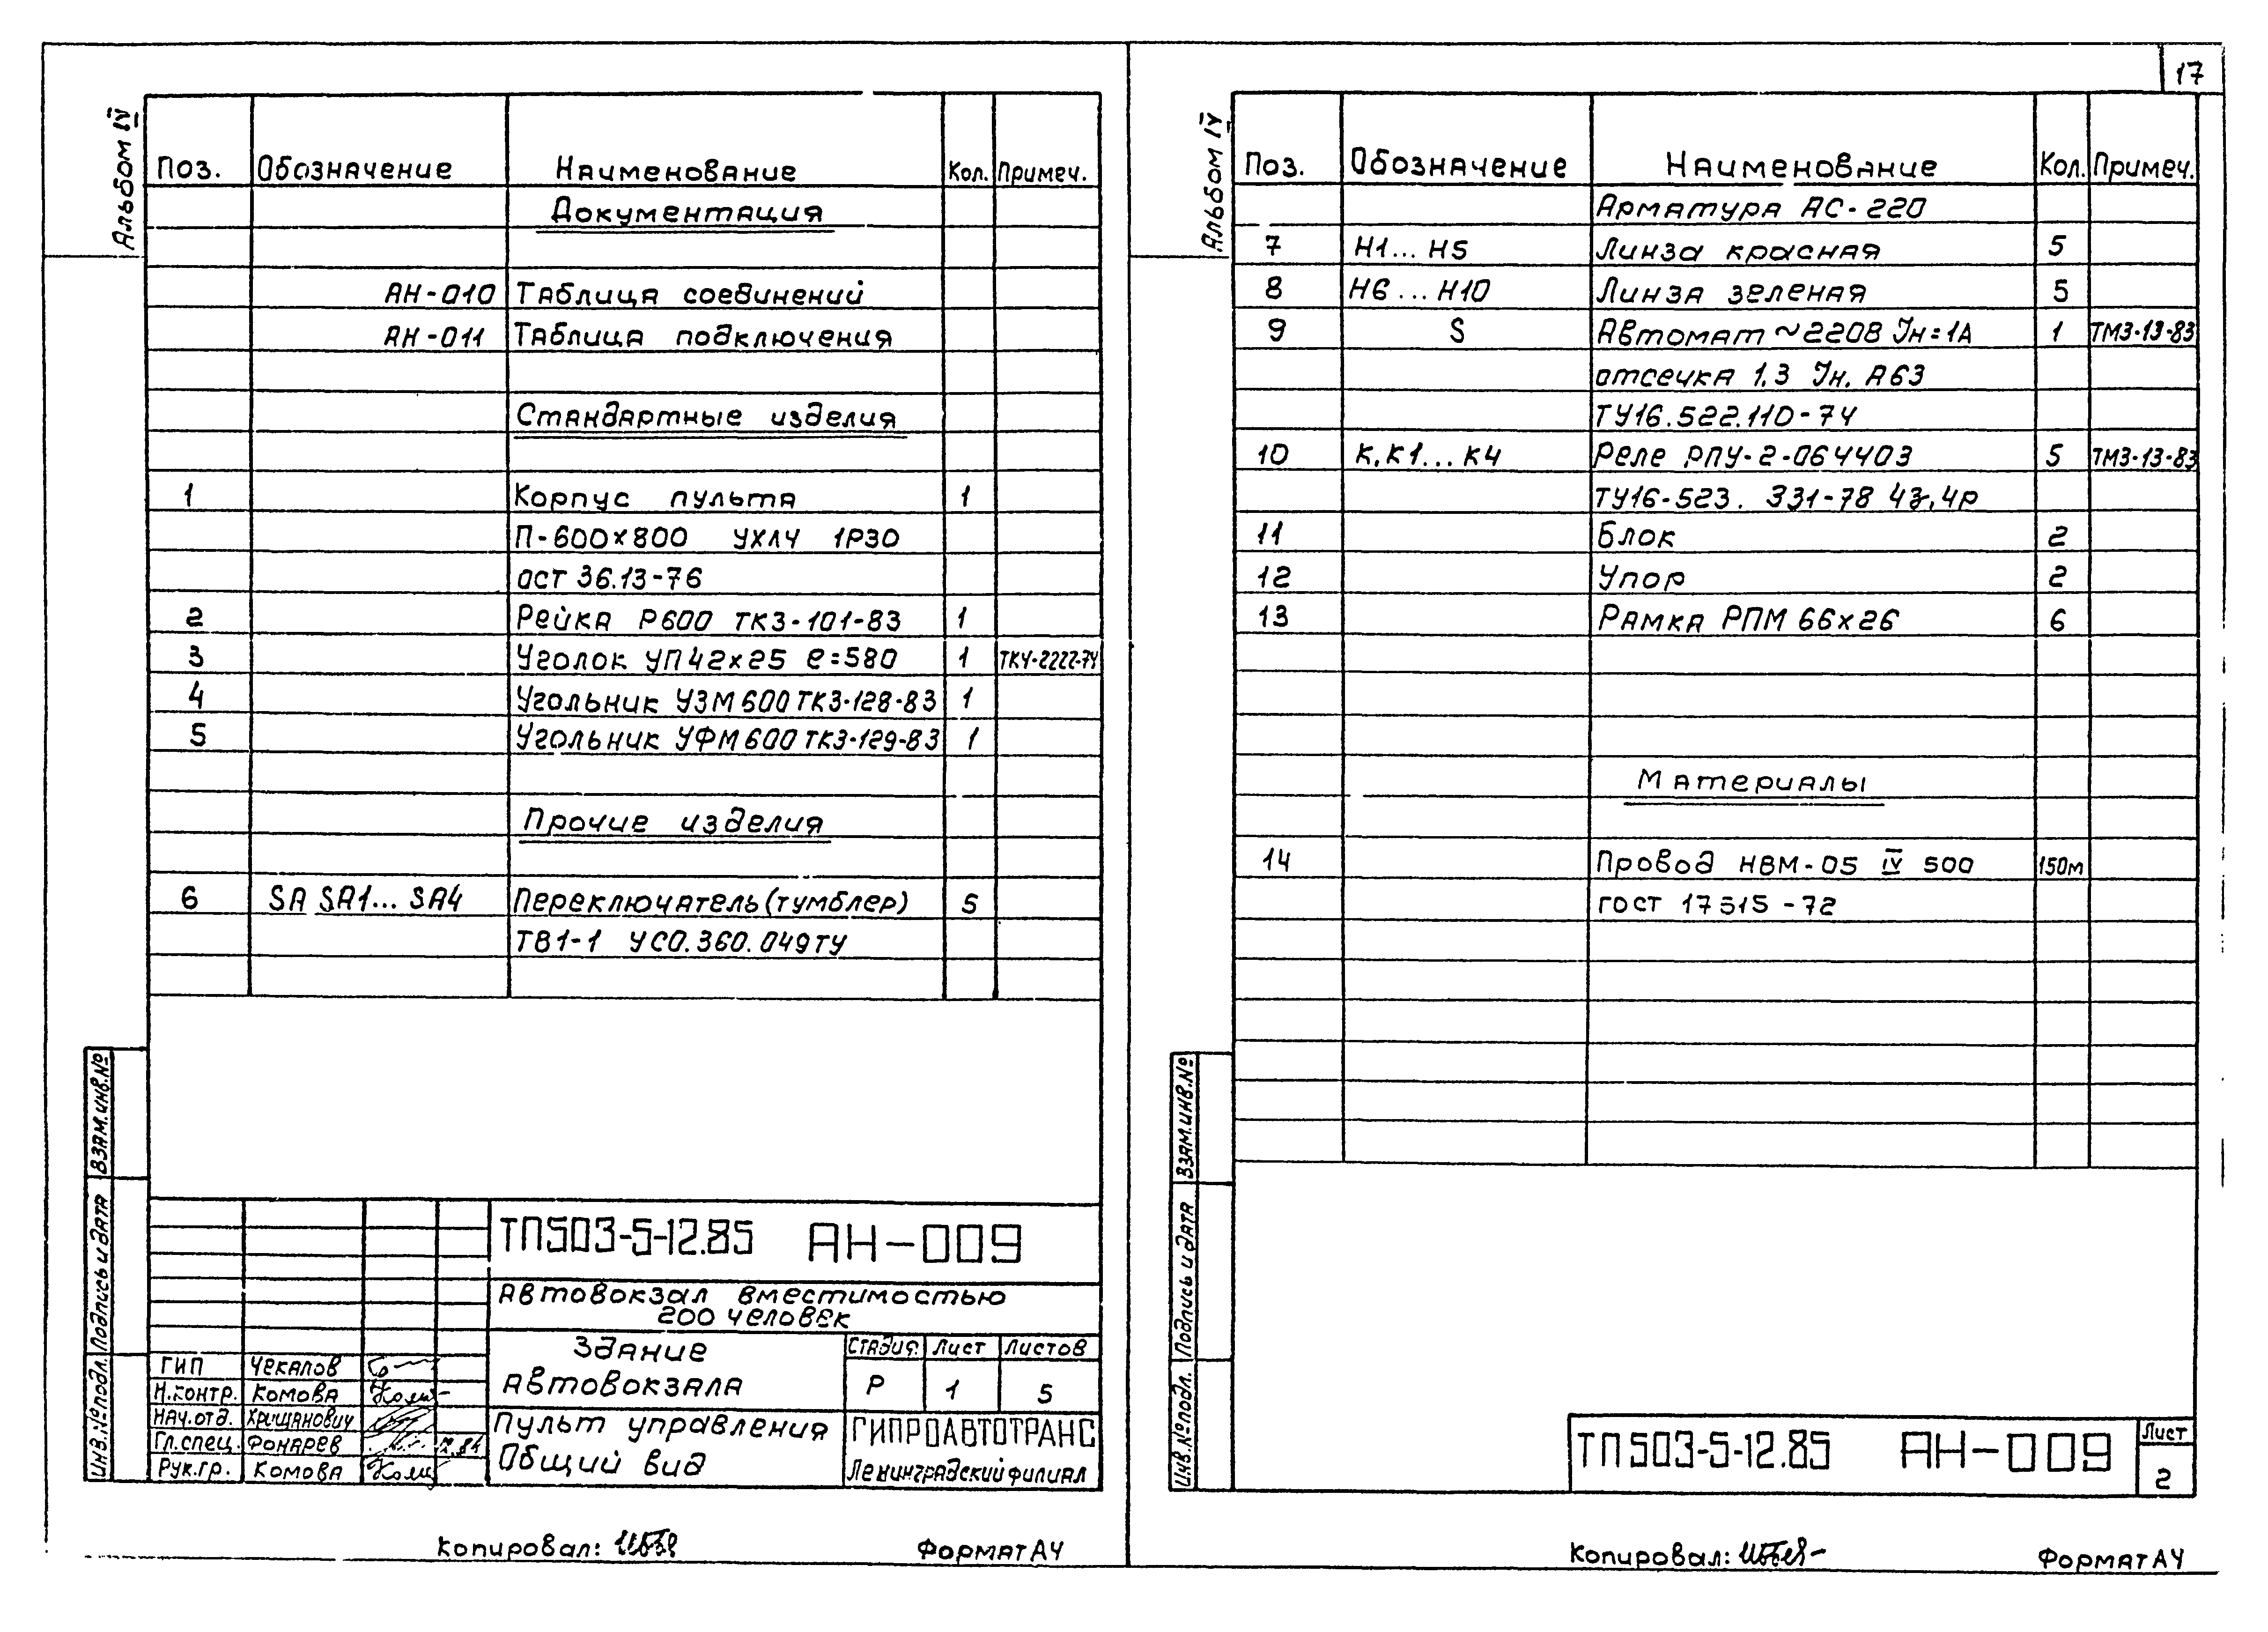 Альбом IV
Поз. Обозначение Наименование Кол. Примеч.
Документация
АН-010 Таблица соединений
АН-011 Таблица подключения
Стандартные изделия
1 Корпус пульта 1
П-600×800 УХЛ4 1Р30
ост 36.13-76
2 Рейка Р600 ТК3-101-83 1
3 Уголок УП42×25 ℓ=580 1 ТК4-2222-74
4 Угольник УЗМ600 ТК3-128-83 1
5 Угольник УФМ600 ТК3-129-83 1
Прочие изделия
6 SA SA1... SA4 Переключатель (тумблер) 5
ТВ1-1 УСО.360.049ТУ
Взам.инв.№
Подпись и дата
Инв.№подл.
ТП503-5-12.85 АН-009
Автовокзал вместимостью
200 человек
Здание
автовокзала
Стадия Лист Листов
Р 1 5
Пульт управления
Общий вид
ГИПРОАВТОТРАНС
Ленинградский филиал
ГИП Чекалов
Н.контр. Комова
Нач.отд. Хрищанович
Гл.спец. Фонарев
Рук.гр. Комова
Копировал:
Формат А4
17
Альбом IV
Поз. Обозначение Наименование Кол. Примеч.
Арматура АС-220
7 Н1... Н5 Линза красная 5
8 Н6... Н10 Линза зеленая 5
9 S Автомат ~220В Jн=1А 1 ТМ3-13-83
отсечка 1,3 Jн. А63
ТУ16.522.110-74
10 К,К1... К4 Реле РПУ-2-064403 5 ТМ3-13-83
ТУ16-523. 331-78 4з,4р
11 Блок 2
12 Упор 2
13 Рамка РПМ 66×26 6
Материалы
14 Провод НВМ-05 IV 500 150м
гост 17515-72
Взам.инв.№
Подпись и дата
Инв.№подл.
ТП503-5-12.85 АН-009
Лист
2
Копировал:
Формат А4